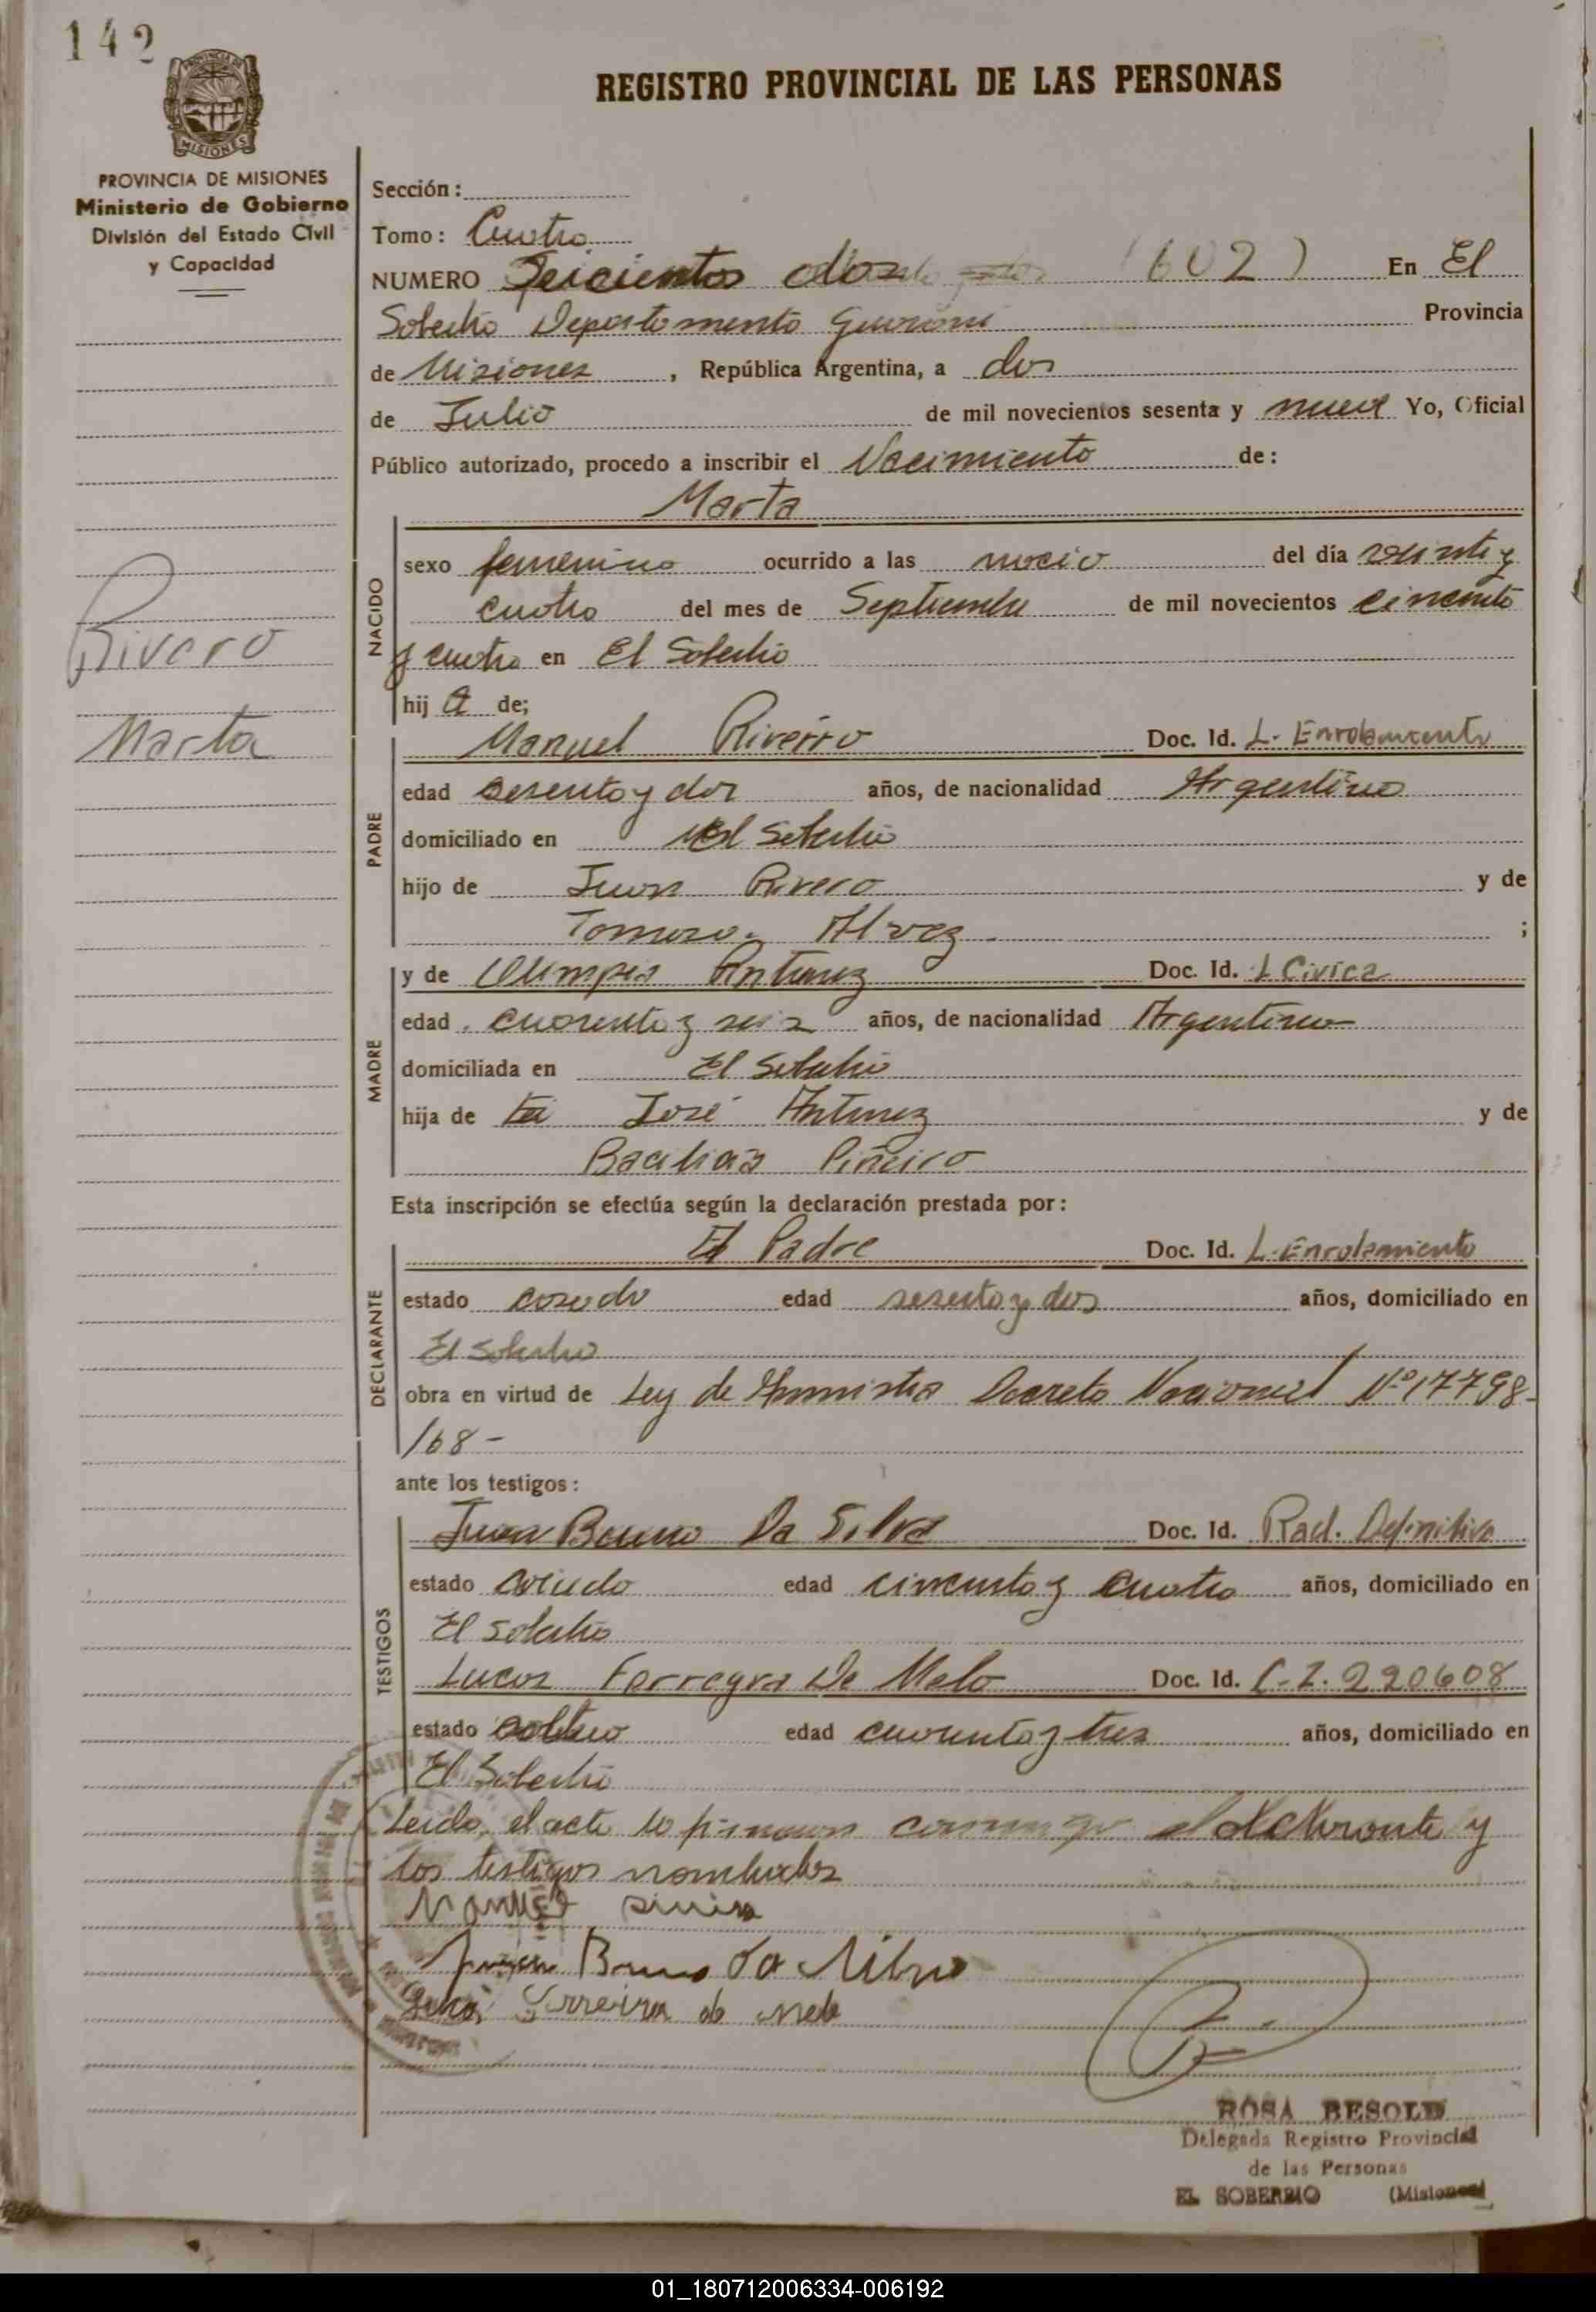 142
REGISTRO PROVINCIAL DE LAS PERSONAS
MISIONES
PROVINCIA DE MISIONES
Ministerio de Gobierno
División del Estado Civil
y Capacidad
Rivero
Marta
Sección:
Tomo: Cuatro
NUMERO Seicientos dos (602) En El
Soberbio Departamento Guarani Provincia
de Misiones, República Argentina, a dos
de Julio de mil novecientos sesenta y nueve Yo, Oficial
Público autorizado, procedo a inscribir el Nacimiento de:
Marta
NACIDO
sexo femenino ocurrido a las del día veinte y
cuatro del mes de Septiembre de mil novecientos cincuenta
y cuatro en El Soberbio
hij a de;
PADRE
Manuel Riverro Doc. Id. L. Enrolamiento
edad sesenta y dos años, de nacionalidad Argentino
domiciliado en El Soberbio
hijo de Juan Rivero y de
Tomasa Alvez ;
MADRE
y de Olimpia Antunez Doc. Id. L Civica
edad cuarenta y seis años, de nacionalidad Argentina
domiciliada en El Soberbio
hija de José Antunez y de
Bacilias Piñeiro
Esta inscripción se efectúa según la declaración prestada por:
DECLARANTE
El Padre Doc. Id. L. Enrolamiento
estado casado edad sesenta y dos años, domiciliado en
El Soberbio
obra en virtud de Ley de Amnistia Decreto Nacional Nº 17798-
/68-
ante los testigos:
TESTIGOS
Juan Bruno Da Silva Doc. Id. Rad. Definitiva
estado edad cincuenta y cuatro años, domiciliado en
El Soberbio
Lucas Ferreyra De Melo Doc. Id. C.I. 220608
estado soltero edad cuarenta y tres años, domiciliado en
El Soberbio
Leida el acta la firman conmigo el declarante y
los testigos nombrados
Manuel
Bruno da Silva
Ferreira de Melo
ROSA BESOLD
Delegada Registro Provincial
de las Personas
EL SOBERBIO (Misiones)
01_180712006334-006192